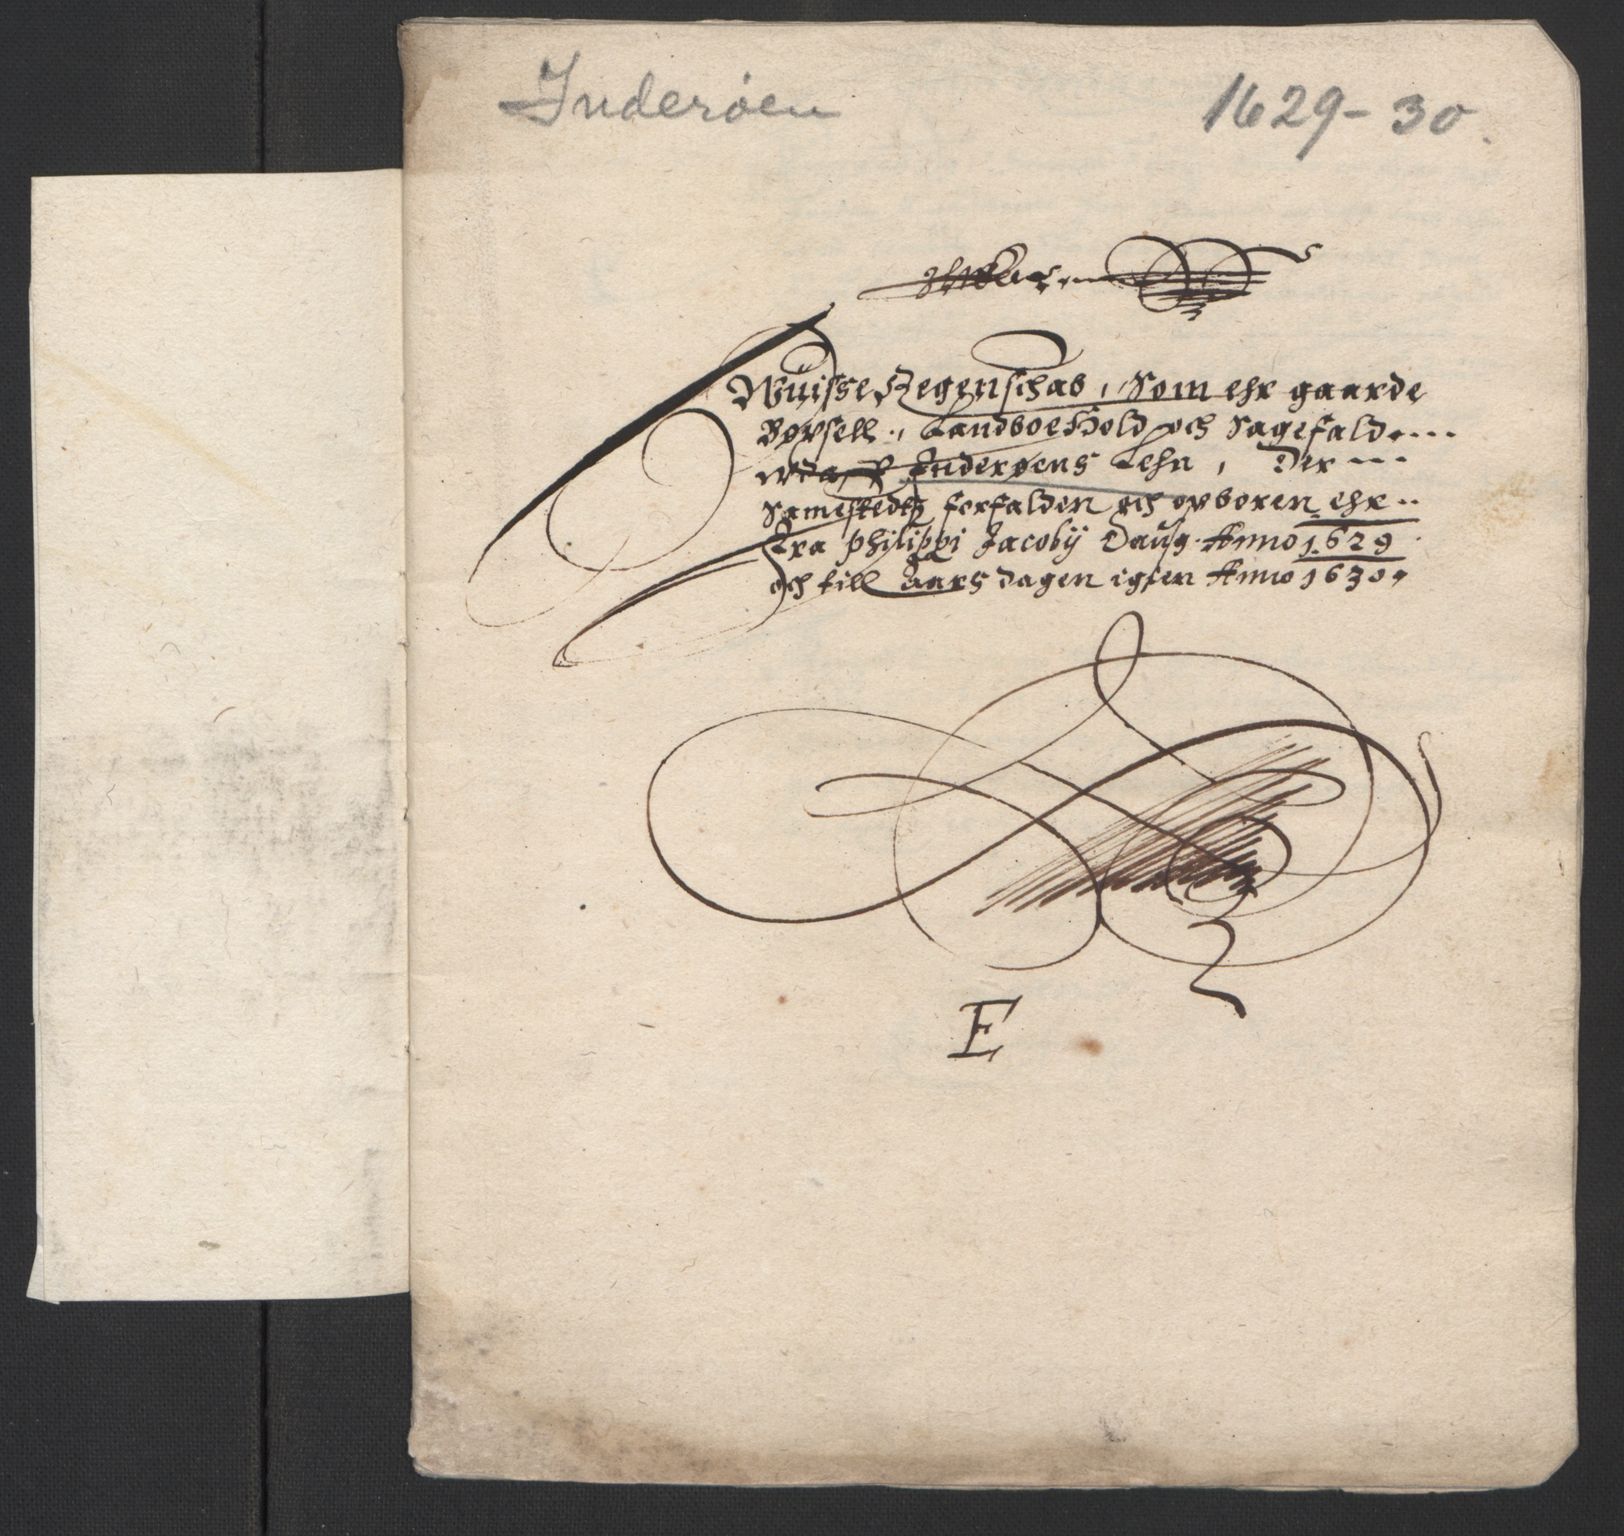 Inderøen 1629-30.
Wuisse Regenschab, Som ehr gaarde
Bøxsell, Landboehold och Sagefald
Inderøens Lehn, Der
Samestedtz forfalden och opboren ehr
Fra Philippi Jacobij Daug Anno 1629
och till Aars dagen igien Anno 1630
E